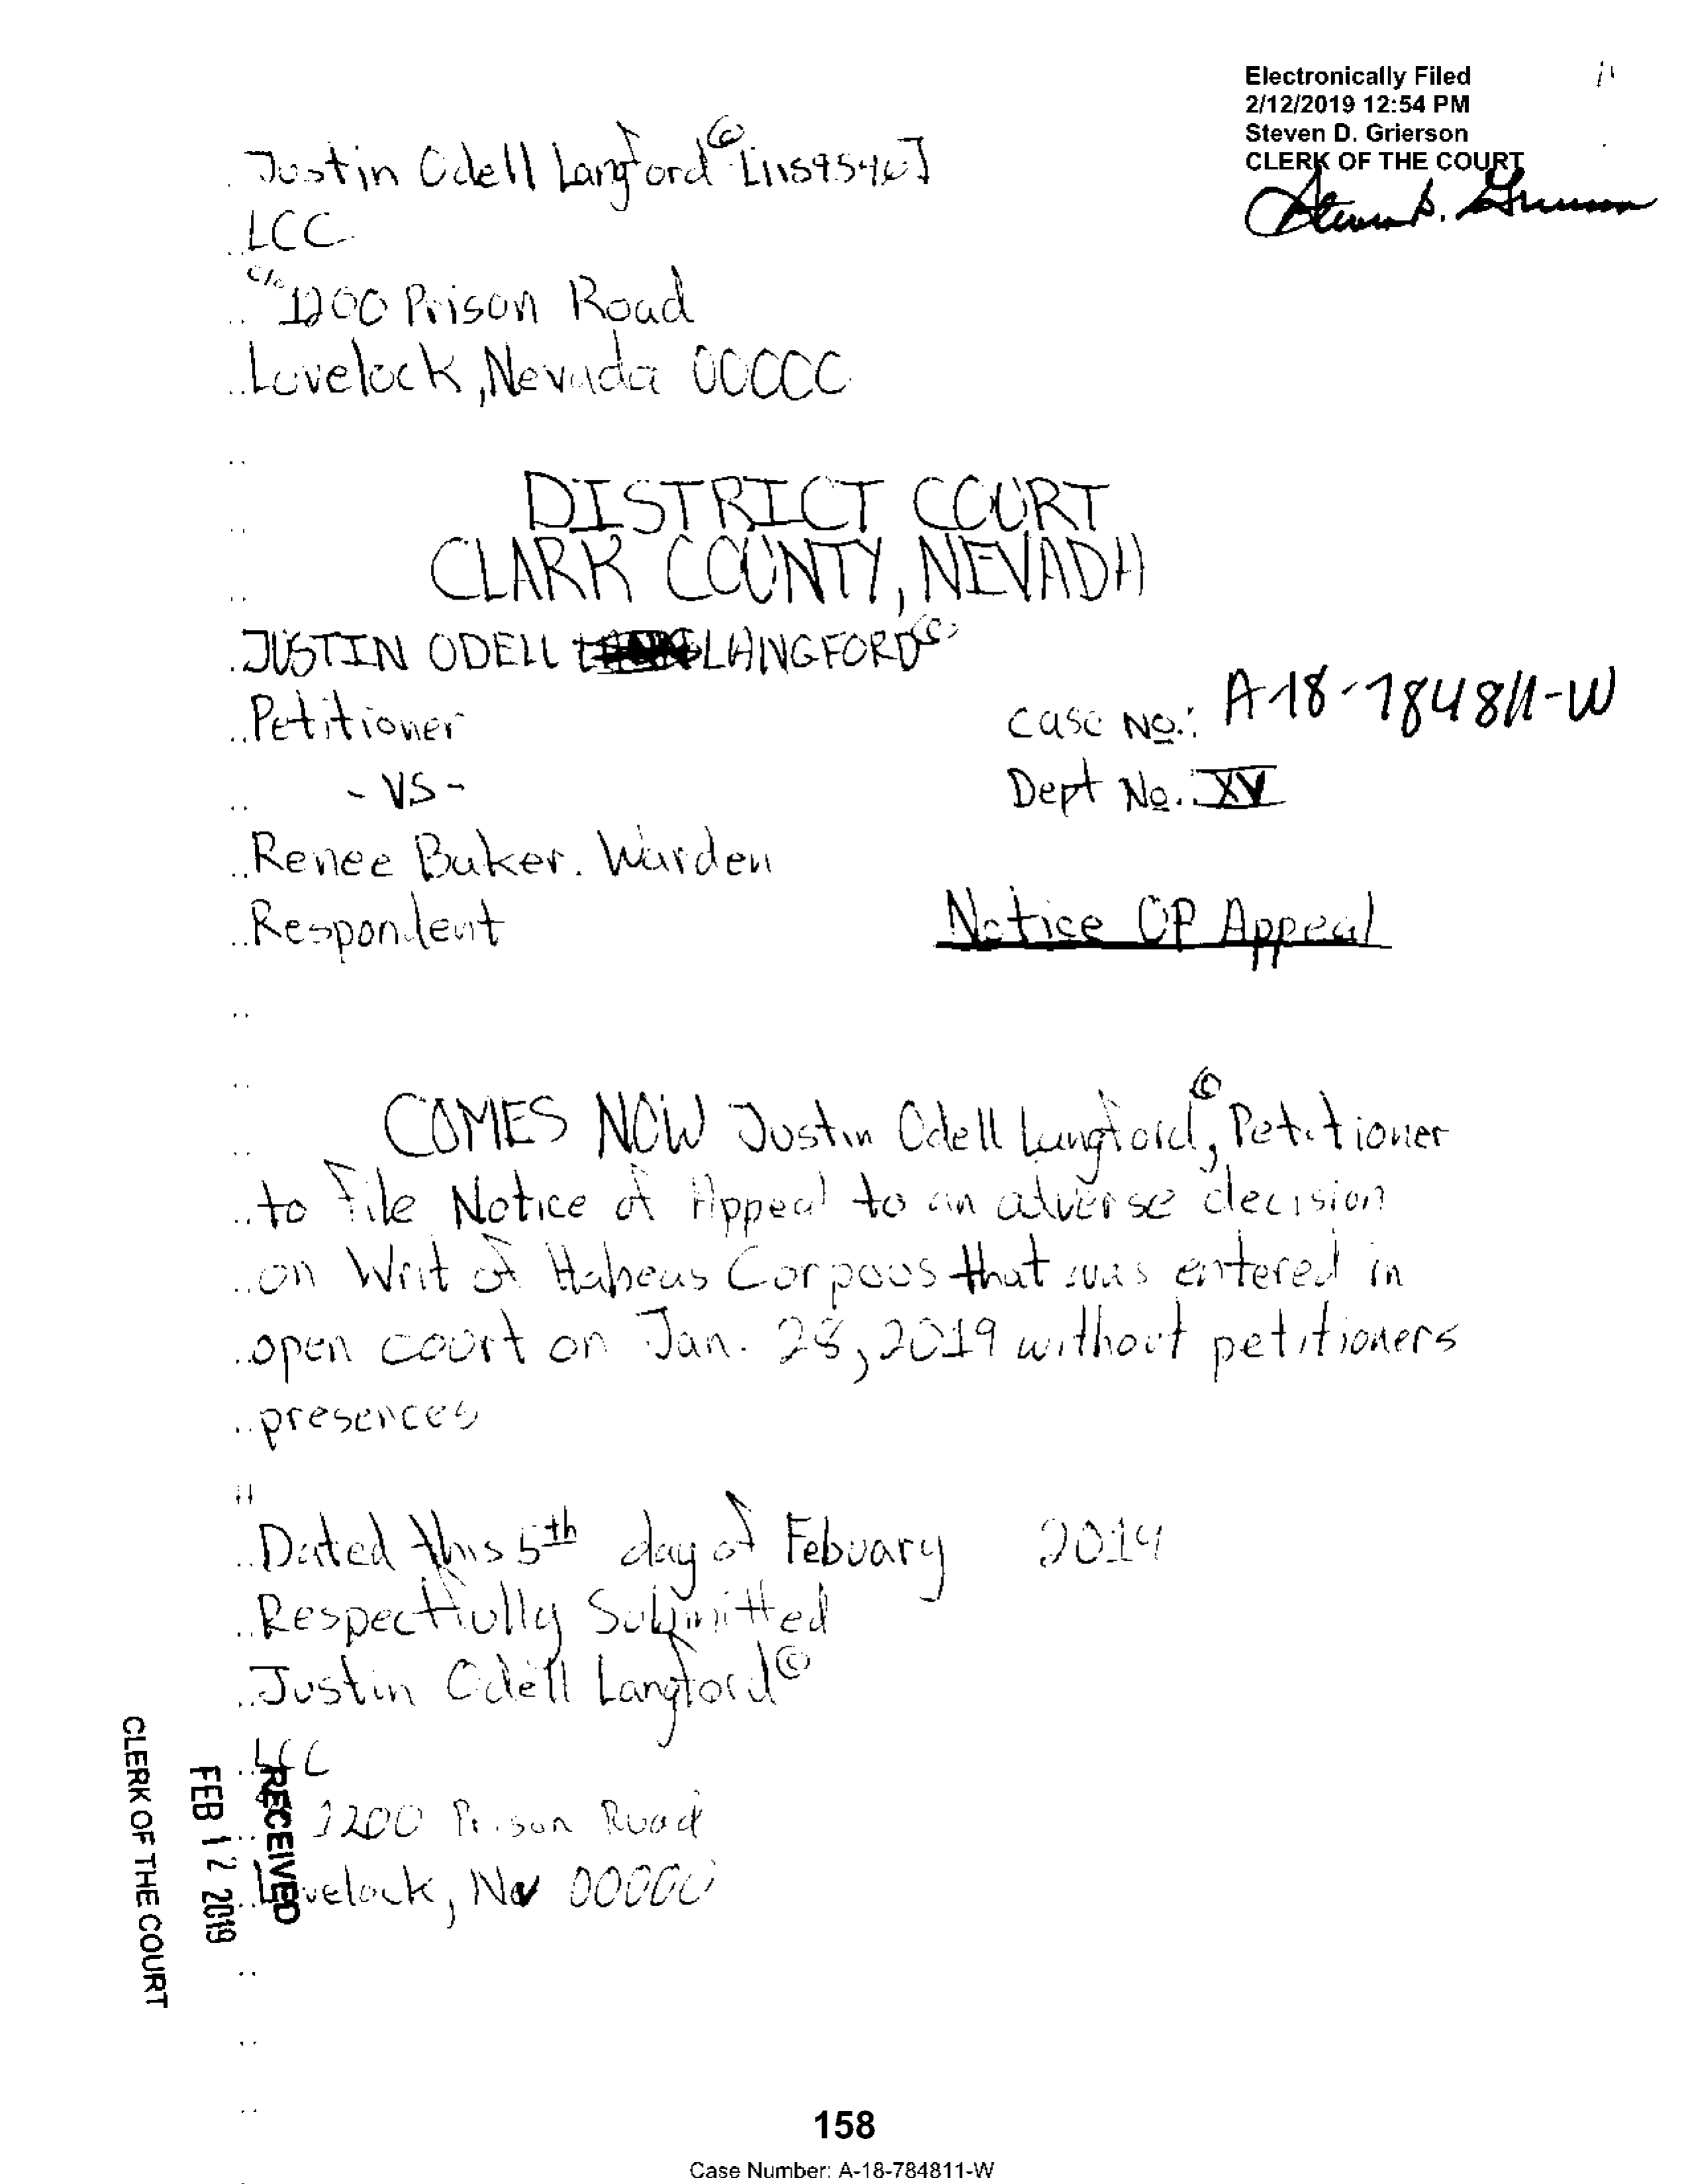 Electronically Filed
2/12/2019 12:54 PM
Steven D. Grierson
CLERK OF THE COURT
Justin Odell Langford© [1159546]
LCC
c/o 1200 Prison Road
Lovelock, Nevada 00000
DISTRICT COURT
CLARK COUNTY, NEVADA
JUSTIN ODELL LANGFORD©
Petitioner
Case No.: A-18-784811-W
- VS -
Dept No.: XV
Renee Baker. Warden
Respondent
Notice OF Appeal
COMES NOW Justin Odell Langford©, Petitioner
to file Notice of Appeal to an adverse decision
on Writ of Habeas Corpous that was entered in
open court on Jan. 28, 2019 without petitioners
presences
Dated this 5th day of Febuary 2019
Respectfully Submitted
Justin Odell Langford©
LCC
1200 Prison Road
Lovelock, Nv 00000
RECEIVED
FEB 12 2019
CLERK OF THE COURT
158
Case Number: A-18-784811-W